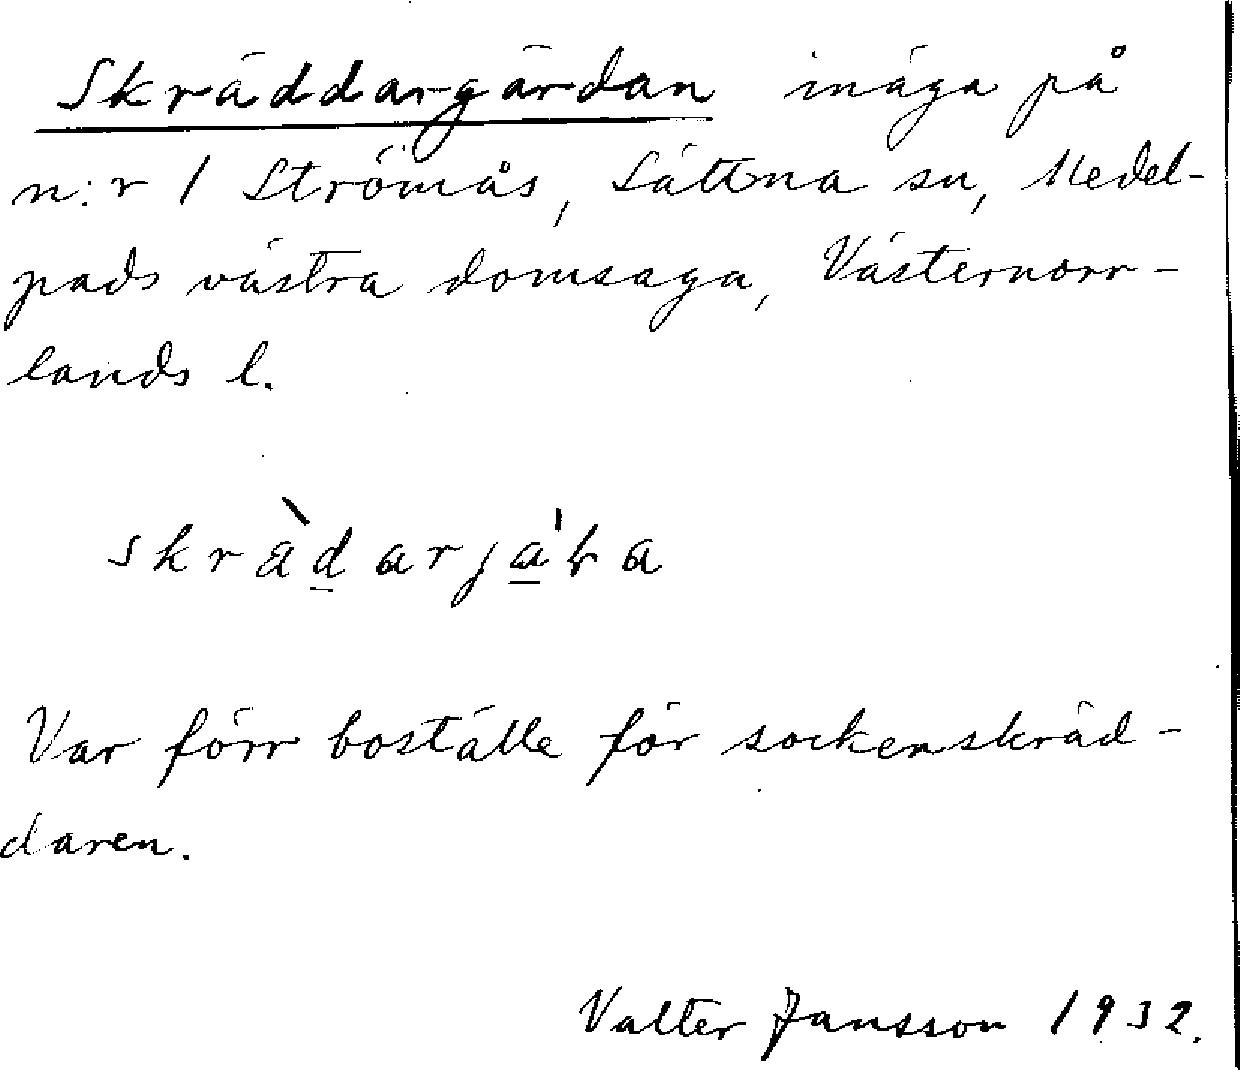 Skräddargärdan inäga på
n:r 1 Strömås, Sättna sn, Medel-
pads västra domsaga, Västernorr-
lands l.
Var förr boställe för sockenskräd-
daren.
Valter Jansson 1932.